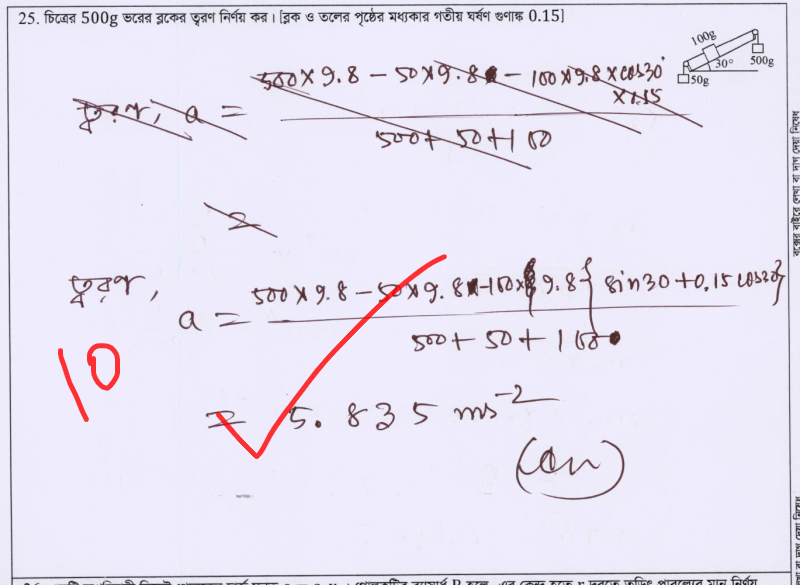 25. চিত্রের 500g ভরের ব্লকের ত্বরণ নির্ণয় কর। [ব্লক ও তলের পৃষ্ঠের মধ্যকার গতীয় ঘর্ষণ গুণাঙ্ক 0.15]
100g
30°
500g
50g
500 × 9.8 - 50 × 9.8 - 100 × 9.8 × cos30°
× 0.15
ত্বরণ, a =
500 + 50 + 100
=
ত্বরণ,
500 × 9.8 - 50 × 9.8 - 100 × 9.8 { sin30 + 0.15 cos30 }
a =
500 + 50 + 100
10
= 5.835 ms⁻²
(Ans)
বক্সের বাইরে লেখা বা দাগ দেয়া নিষেধ